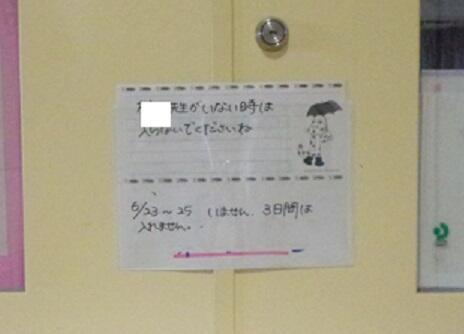 先生がいない時は
入らないでくださいね
6/23～25 いません。3日間は
入れません。